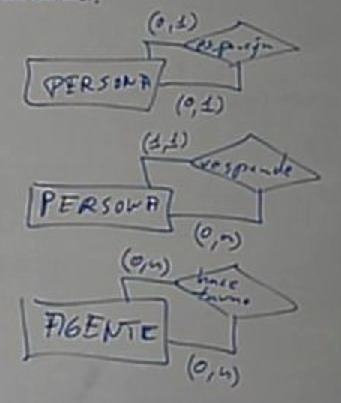 (0,1)
es pareja
PERSONA
(0,1)
(1,1)
responde
PERSONA
(0,n)
(0,n)
hace
turno
AGENTE
(0,n)